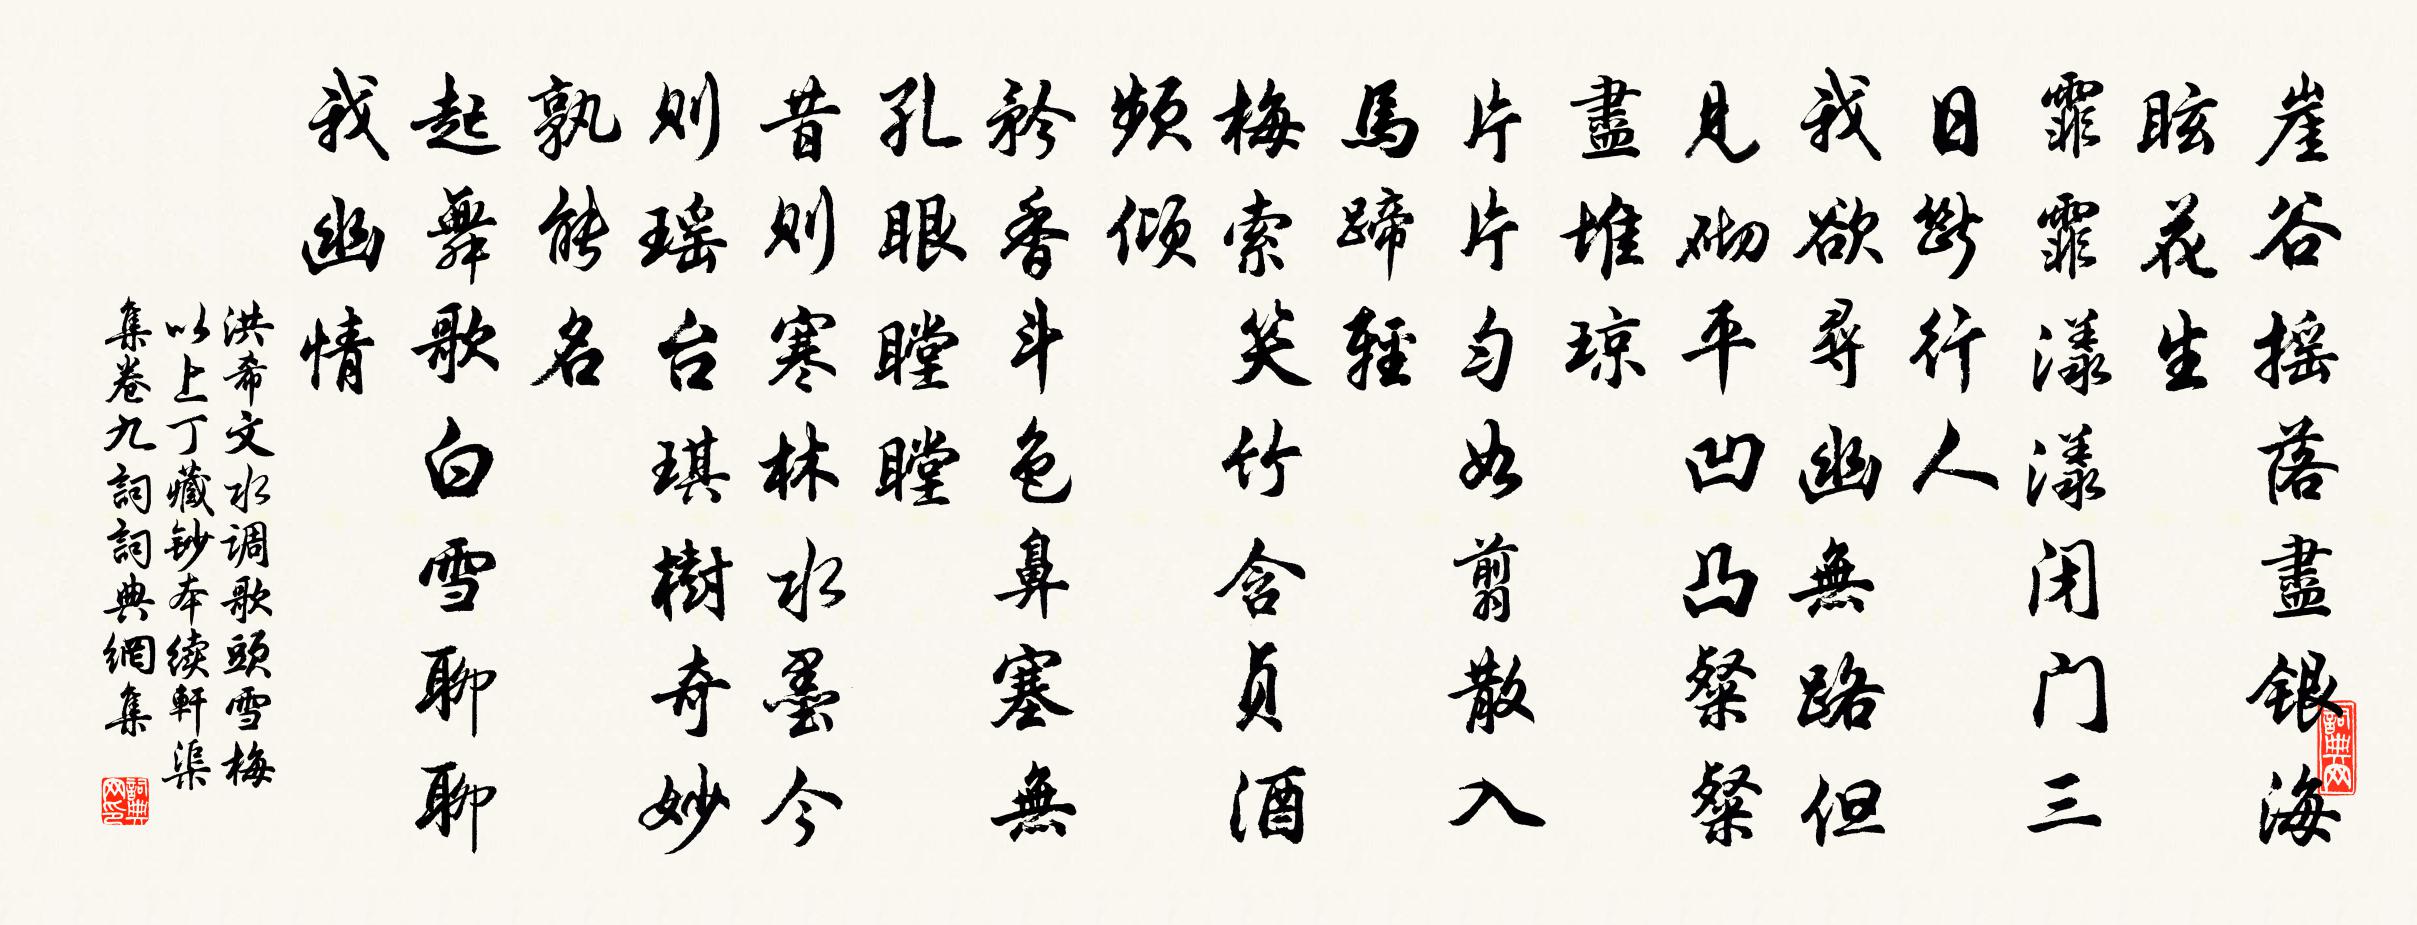 崖谷摇落盡銀海
眩花生
霏霏漾漾闭门三
日斷行人
我欲尋幽無路但
見砌平凹凸粲粲
盡堆琼
片片匀如剪散入
馬蹄輕
梅索笑竹含貞酒
频倾
矜香斗色鼻塞無
孔眼瞠瞠
昔则寒林水墨今
则瑶台琪樹奇妙
孰能名
起舞歌白雪聊聊
我幽情
洪希文水调歌頭雪梅
以上丁藏鈔本续軒渠
集卷九詞詞典網集
詞典网
詞典网印